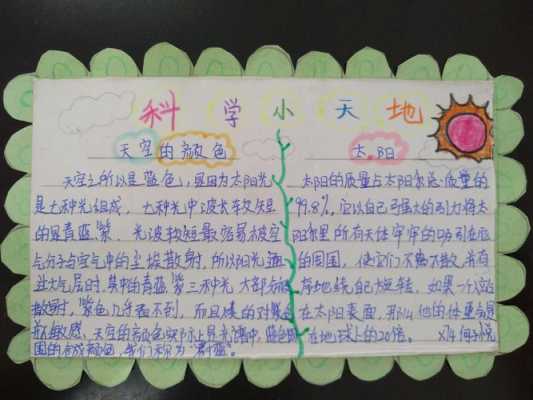 科学小天地
天空的颜色
天空之所以是蓝色,是因为太阳光
是七种光组成,七种光中波长较短
的是青蓝紫,光波较短最容易被空
气分子与空气中的尘埃散射,所以阳光通
过大气层时,其中的青蓝紫三种光大部分被
散射,紫色几乎看不到,而且
天空的颜色实际上是光谱中蓝色
的合成颜色,我们称为
太阳
太阳的质量占太阳系总质量的
99.8%,它以自己强大的引力将太
阳系里所有天体牢牢的吸引在它
的周围,使它们不离不散,井然有
序地绕自己旋转,如果一个人站
在太阳表面,那么他的体重会是
在地球上的20倍。